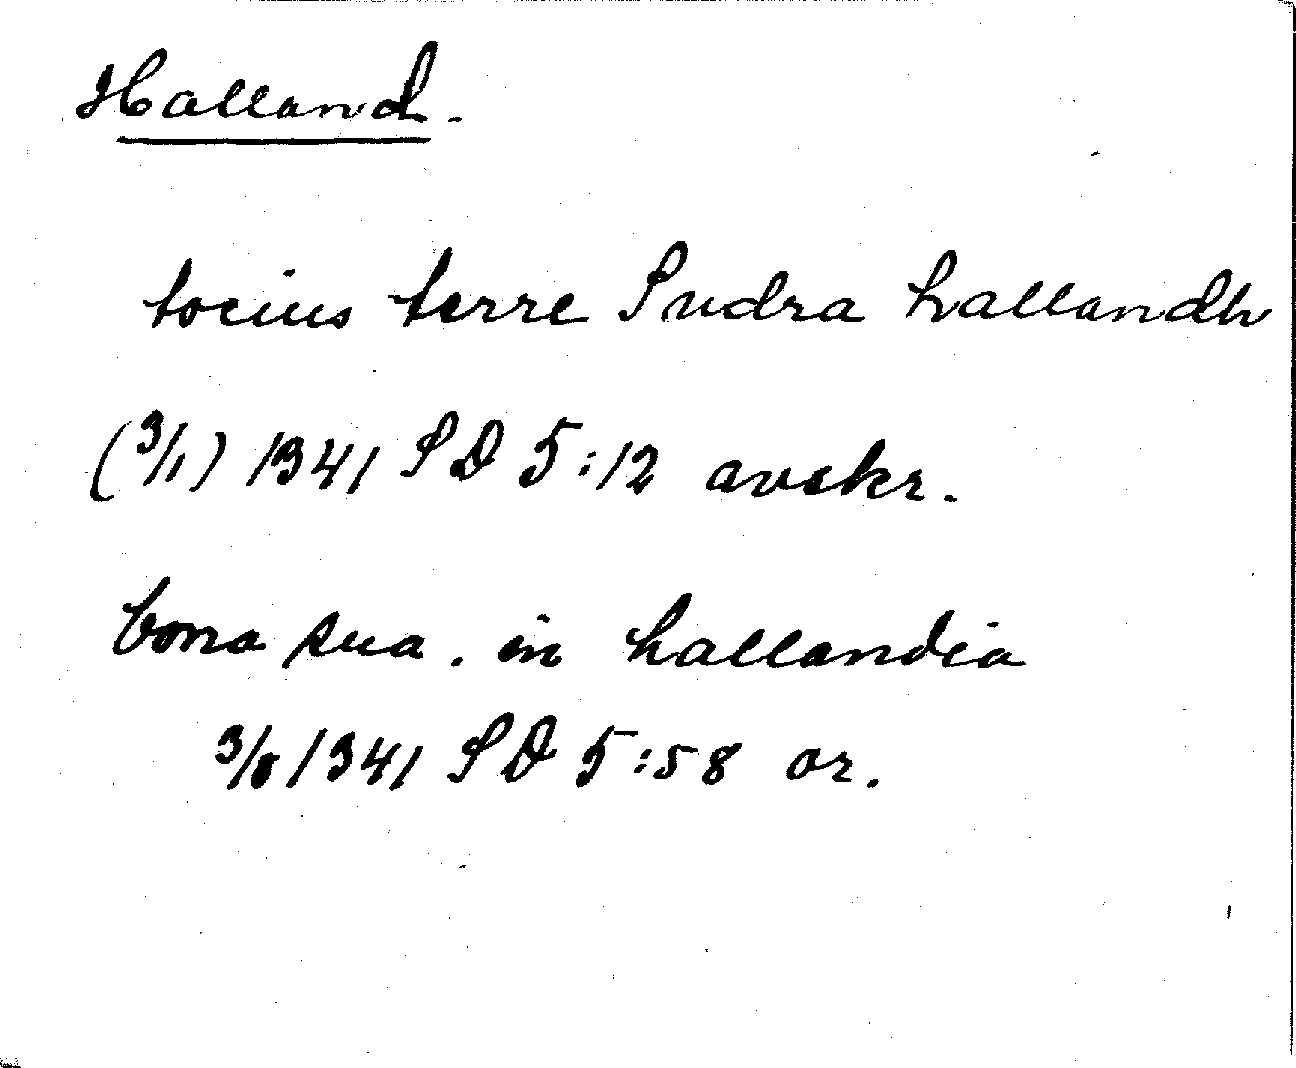 Halland.
tocius terre Sudra hallandh
(3/1) 1341 SD 5:12 avskr.
bona sua . in hallandia
3/8 1341 SD 5:58 or.